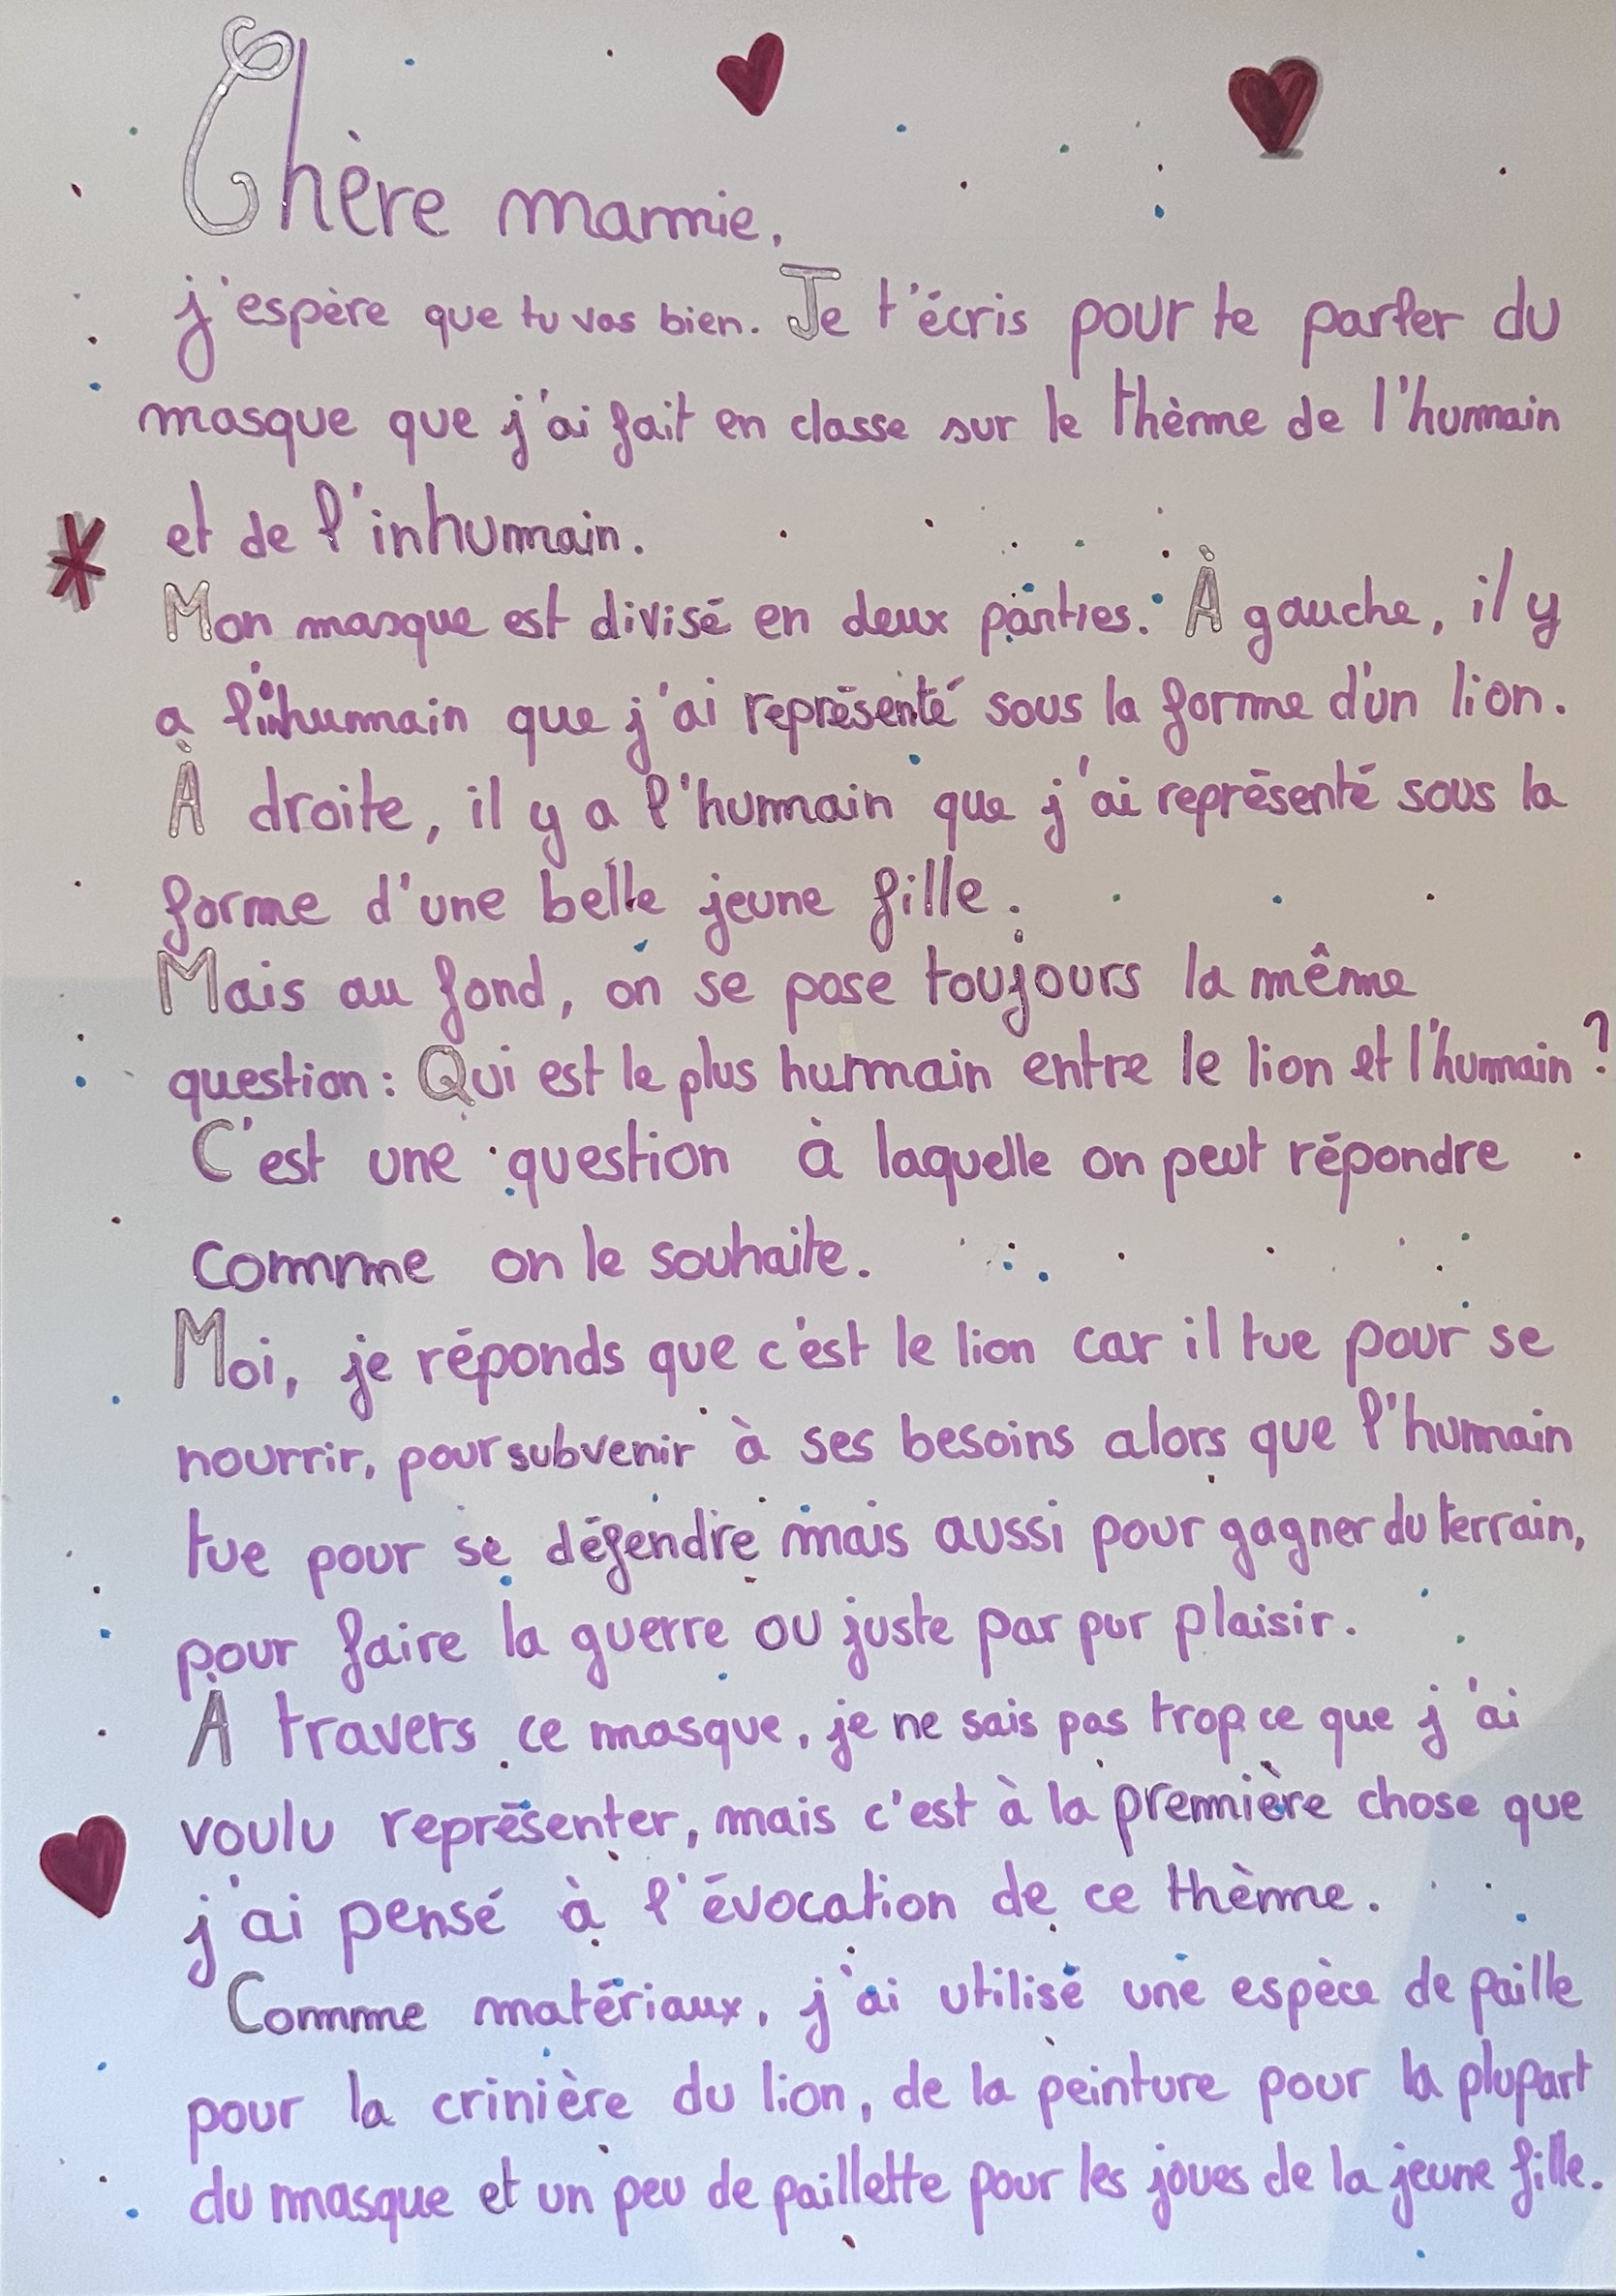 Chère mamie,
j'espère que tu vas bien. Je t'écris pour te parler du
masque que j'ai fait en classe sur le thème de l'humain
et de l'inhumain.
Mon masque est divisé en deux parties. À gauche, il y
a l'inhumain que j'ai représenté sous la forme d'un lion.
À droite, il y a l'humain que j'ai représenté sous la
forme d'une belle jeune fille.
Mais au fond, on se pose toujours la même
question : Qui est le plus humain entre le lion et l'humain ?
C'est une question à laquelle on peut répondre
comme on le souhaite.
Moi, je réponds que c'est le lion car il tue pour se
nourrir, pour subvenir à ses besoins alors que l'humain
tue pour se défendre mais aussi pour gagner du terrain,
pour faire la guerre ou juste par pur plaisir.
À travers ce masque, je ne sais pas trop ce que j'ai
voulu représenter, mais c'est à la première chose que
j'ai pensé à l'évocation de ce thème.
Comme matériaux, j'ai utilisé une espèce de paille
pour la crinière du lion, de la peinture pour la plupart
du masque et un peu de paillette pour les joues de la jeune fille.